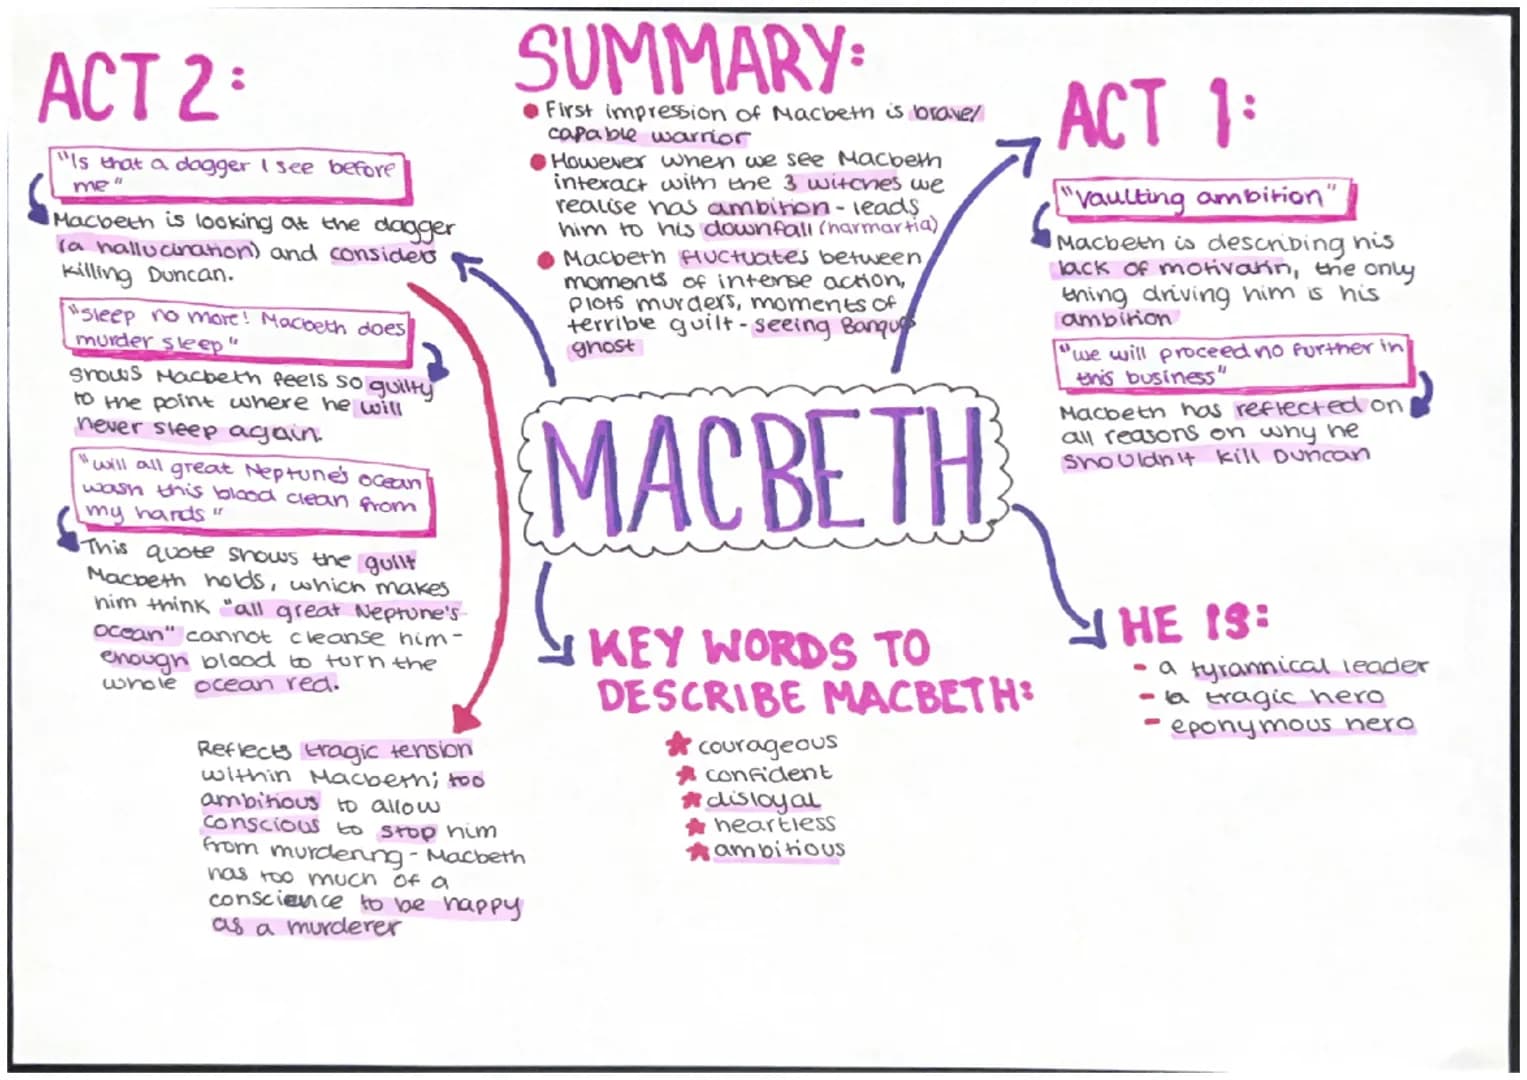 SUMMARY:
First impression of Macbeth is brave/
capable warrior
However when we see Macbeth
interact with the 3 witches we
realise has ambition - leads
him to his downfall (harmartia)
Macbeth fluctuates between
moments of intense action,
plots murders, moments of
terrible guilt - seeing Banquo
ghost
ACT 2:
"Is that a dagger I see before
me"
Macbeth is looking at the dagger
(a hallucination) and considers
killing Duncan.
"Sleep no more! Macbeth does
murder sleep"
shows Macbeth feels so guilty
to the point where he will
never sleep again.
"will all great Neptune's ocean
wash this blood clean from
my hands"
This quote shows the guilt
Macbeth holds, which makes
him think "all great Neptune's
ocean" cannot cleanse him -
enough blood to turn the
whole ocean red.
Reflects tragic tension
within Macbeth; too
ambitious to allow
conscious to stop him
from murdering - Macbeth
has too much of a
conscience to be happy
as a murderer
ACT 1:
"Vaulting ambition"
Macbeth is describing his
lack of motivatin, the only
thing driving him is his
ambition
"we will proceed no further in
this business"
Macbeth has reflected on
all reasons on why he
shouldn't kill Duncan
MACBETH
KEY WORDS TO
DESCRIBE MACBETH:
courageous
confident
disloyal
heartless
ambitious
HE IS:
- a tyrannical leader
- a tragic hero
- eponymous hero